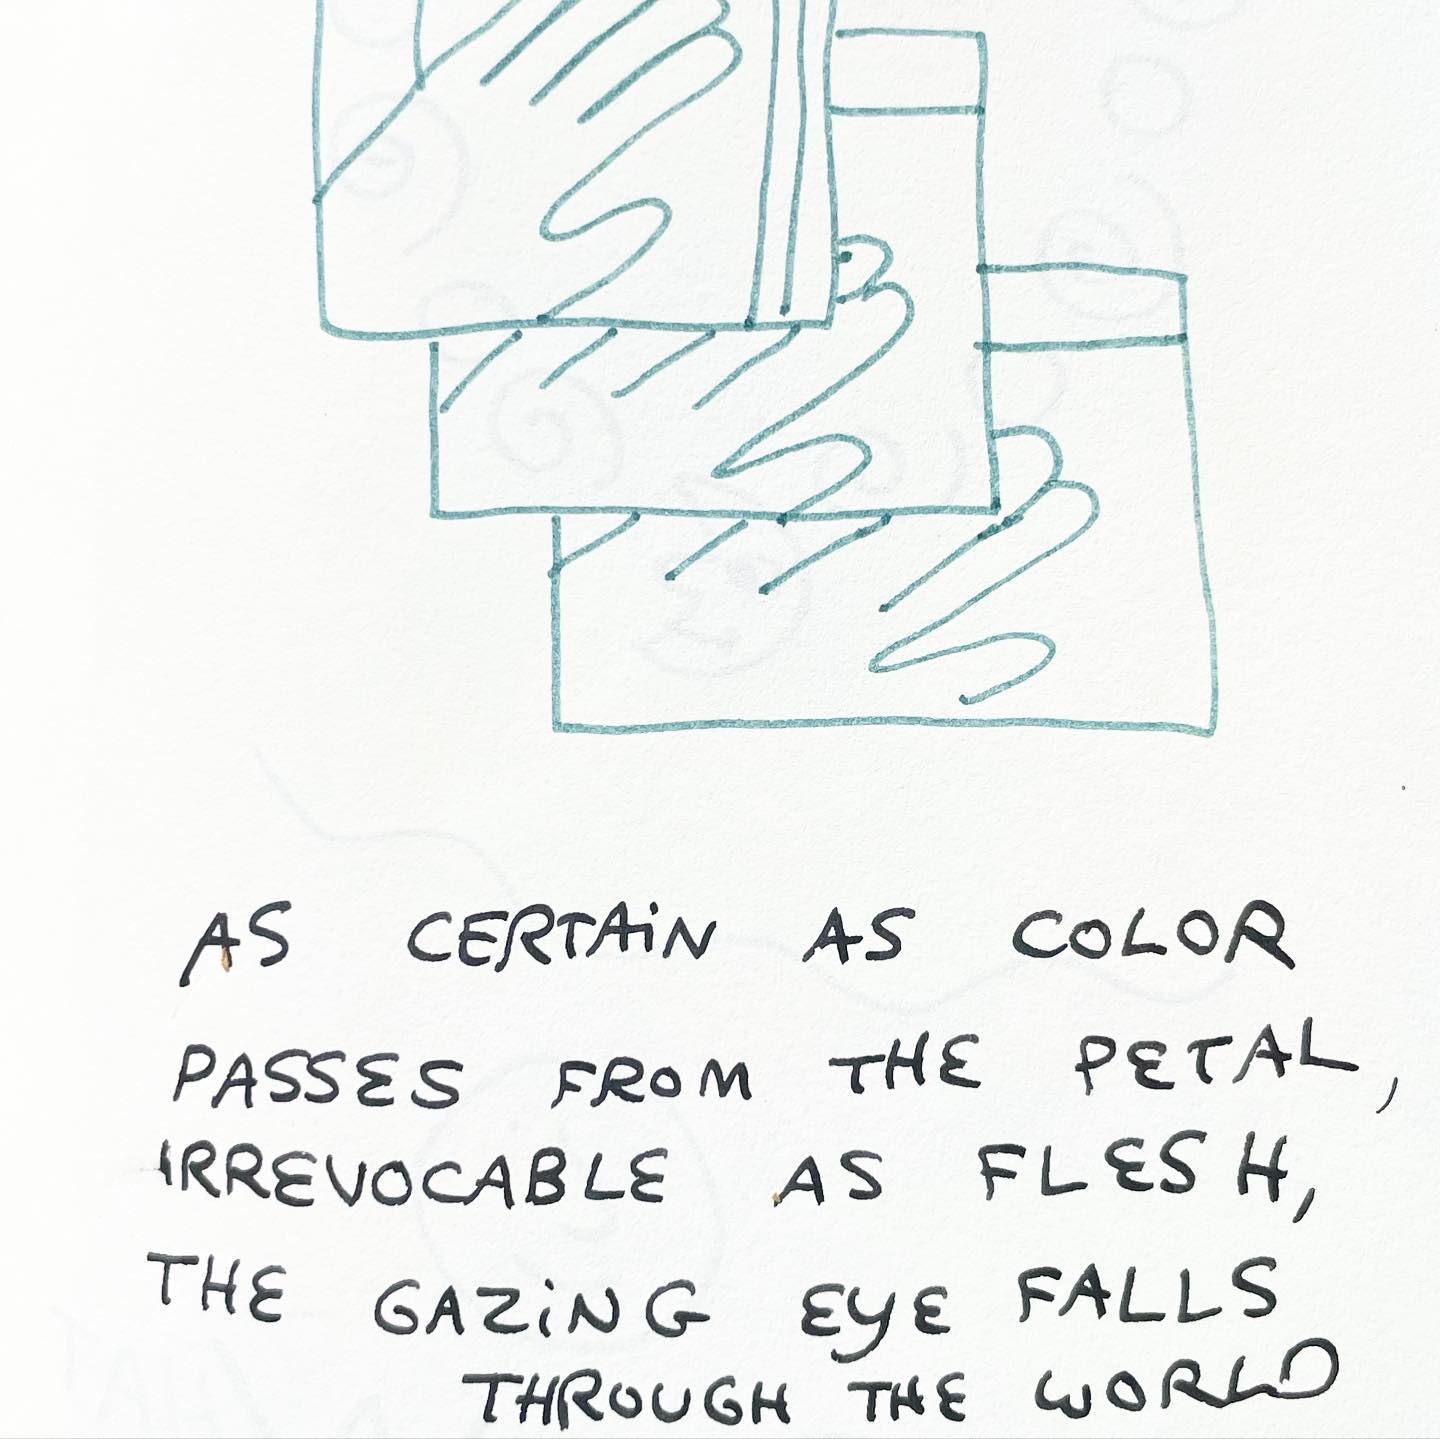 AS CERTAIN AS COLOR
PASSES FROM THE PETAL,
IRREVOCABLE AS FLESH,
THE GAZING EYE FALLS
THROUGH THE WORLD